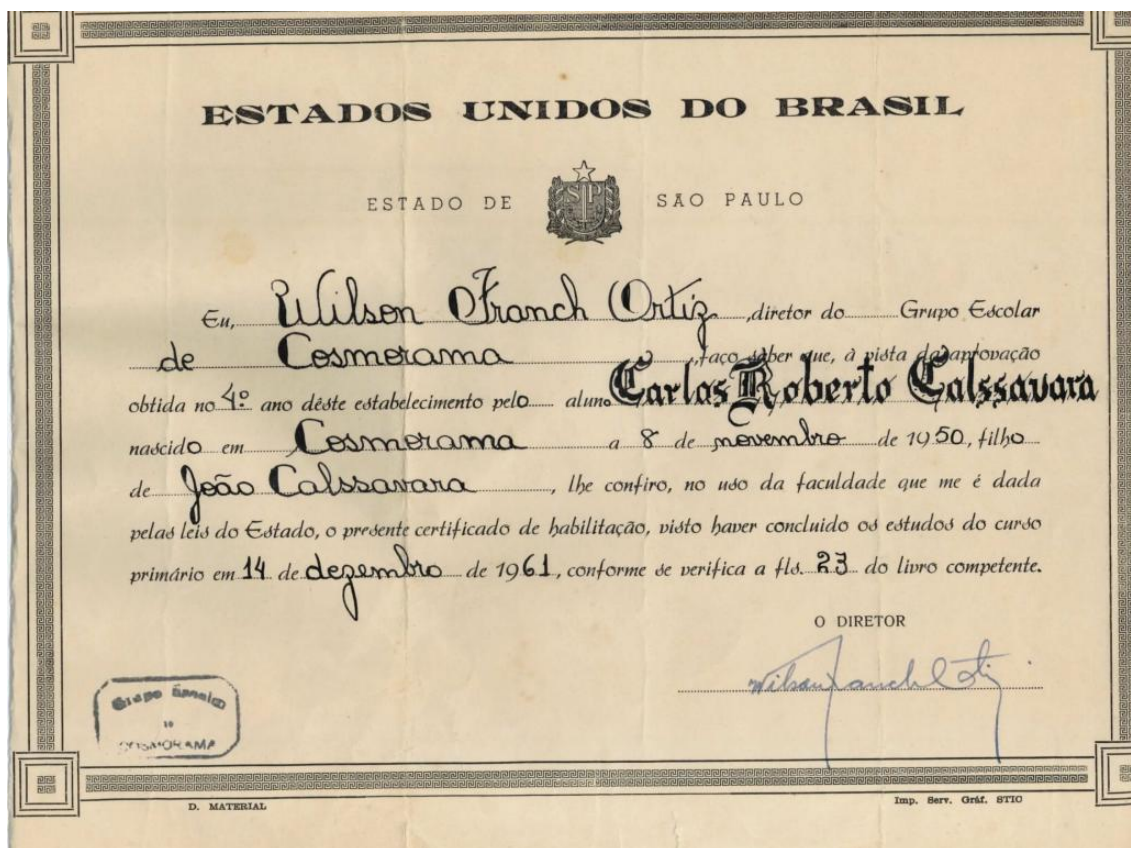 ESTADOS UNIDOS DO BRASIL
ESTADO DE SP SÃO PAULO
Eu, Wilson Franch Ortiz, diretor do Grupo Escolar
de Cosmorama, faço saber que, à vista da aprovação
obtida no 4º ano dêste estabelecimento pelo aluno Carlos Roberto Calssavara
nascido em Cosmorama a 8 de novembro de 1950, filho
de João Calssavara, lhe confiro, no uso da faculdade que me é dada
pelas leis do Estado, o presente certificado de habilitação, visto haver concluido os estudos do curso
primário em 14 de dezembro de 1961, conforme se verifica a fls. 23 do livro competente.
O DIRETOR
Grupo
COSMORAMA
D. MATERIAL
Imp. Serv. Gráf. STIC